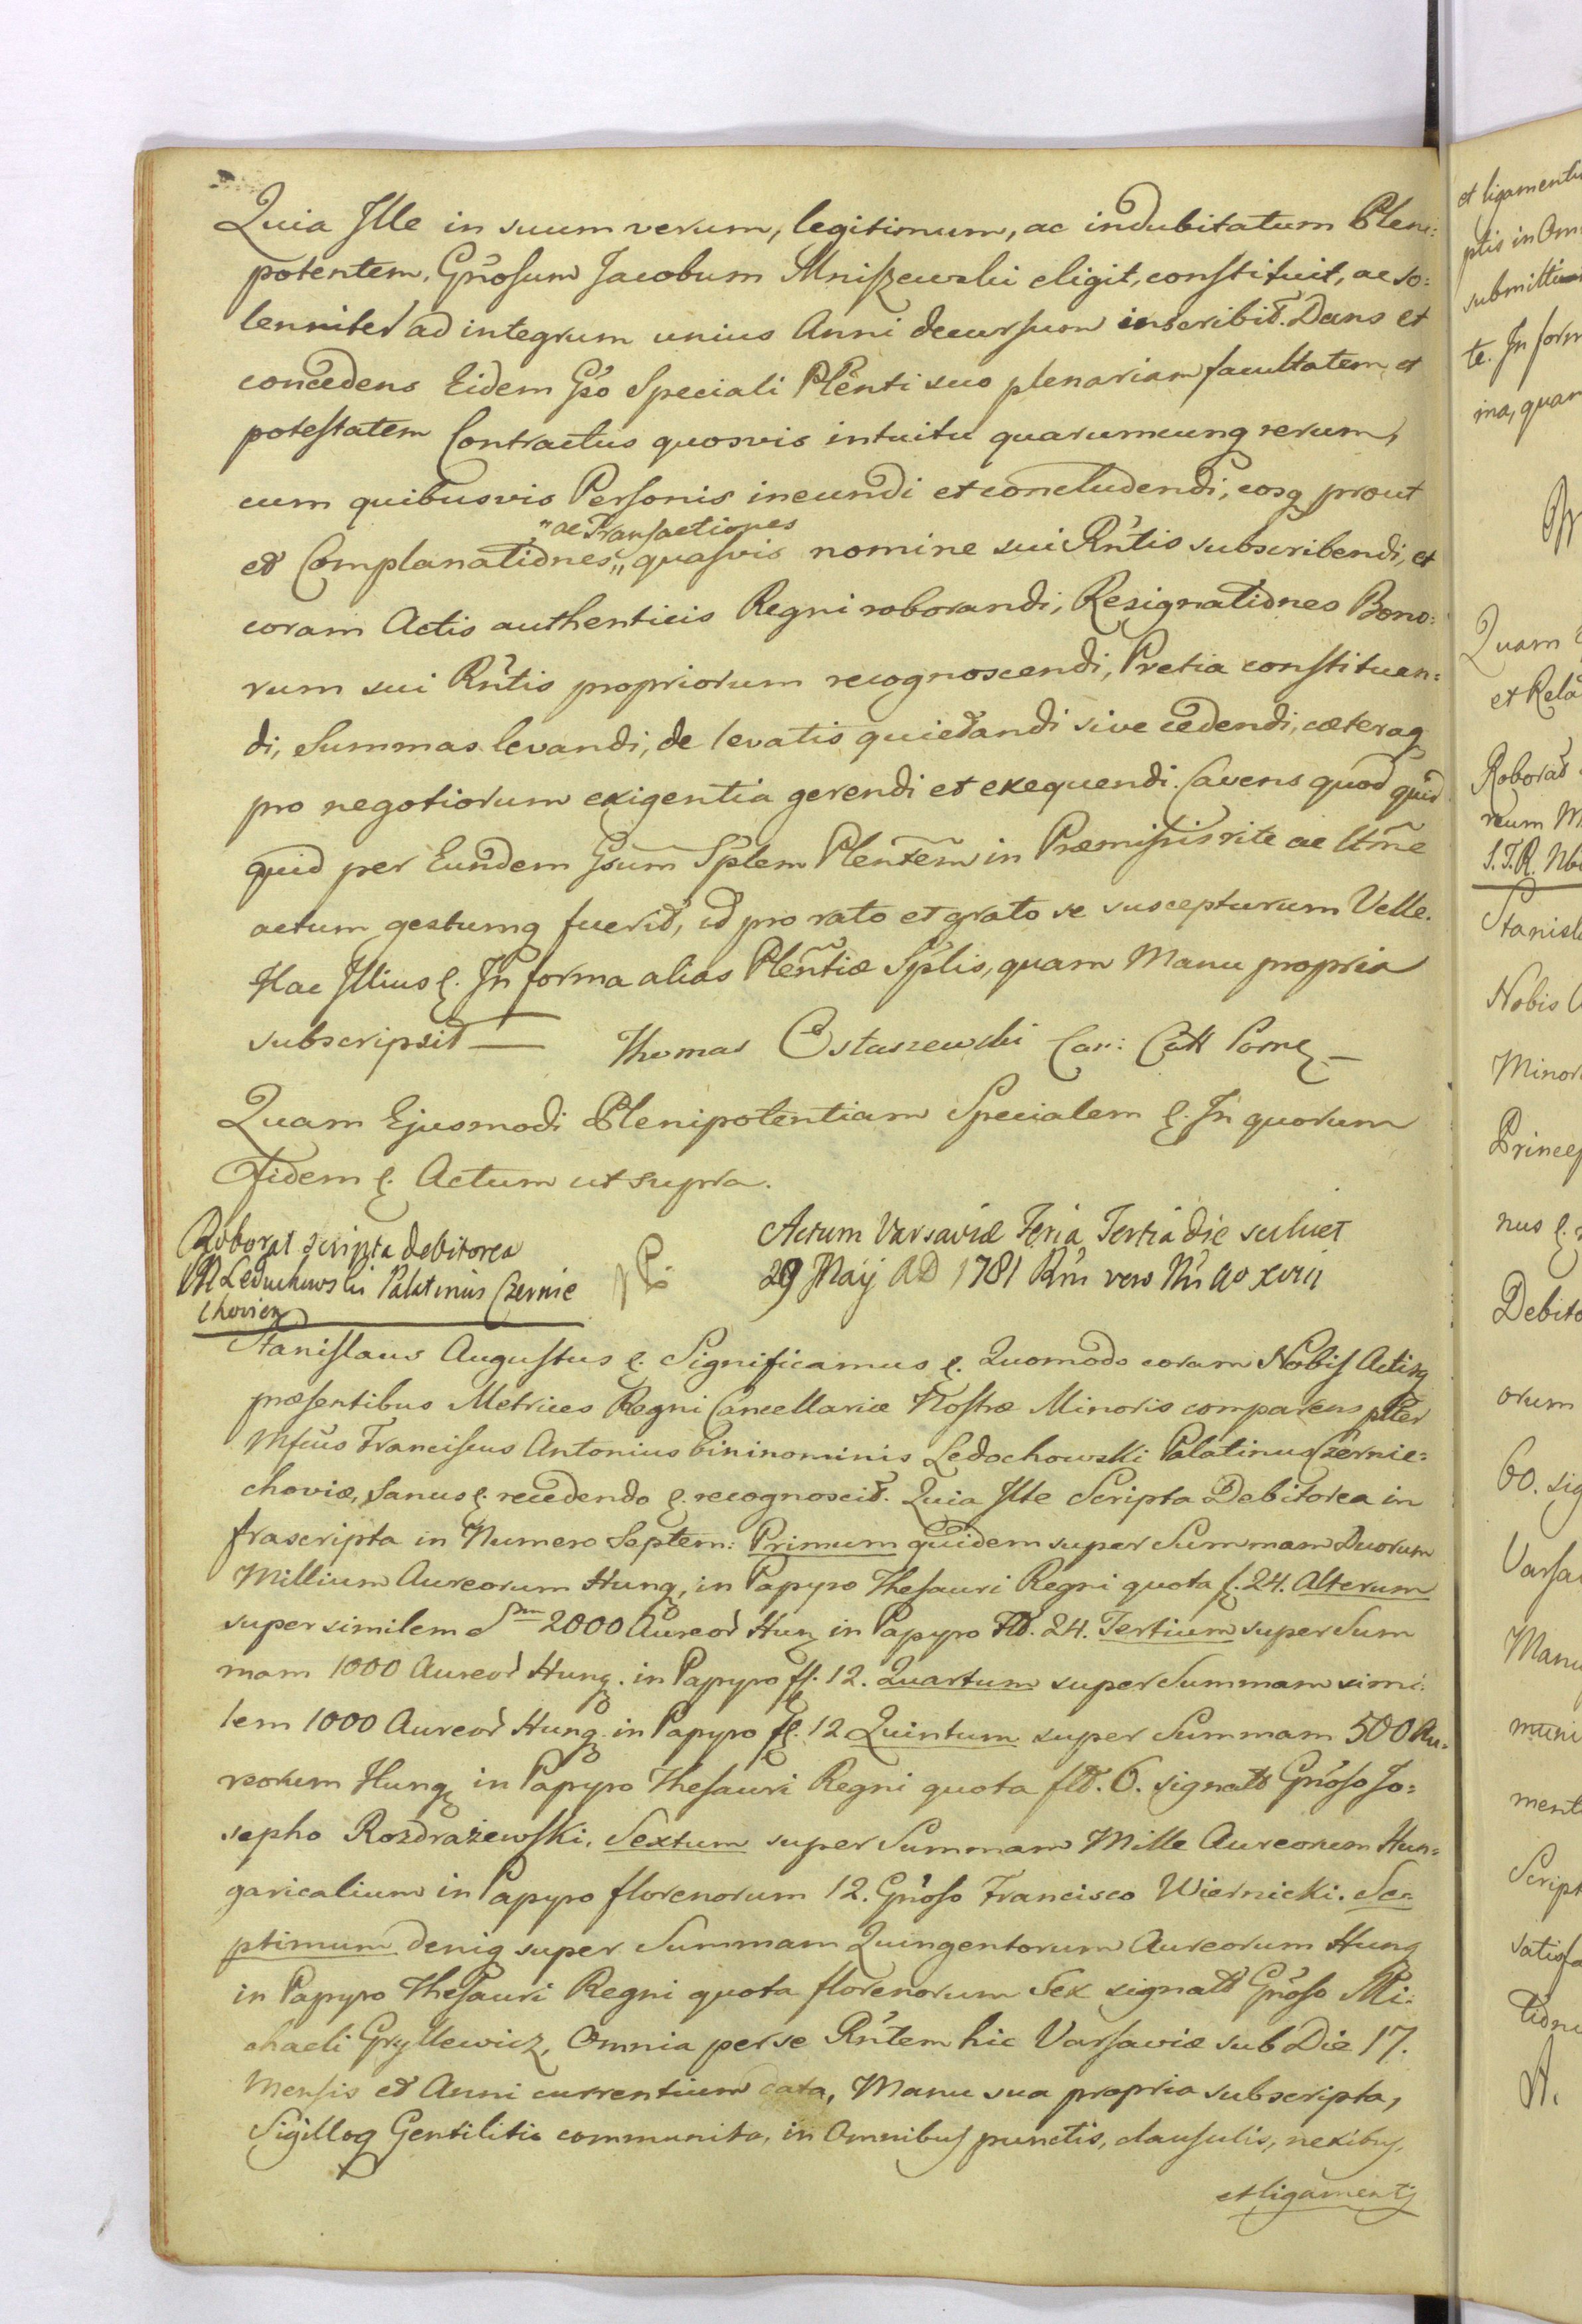 Quia Jlle in suum verum, legitimum, ac indubitatum Pleni:
potentem, Gnosum Jacobum Mniszewski eligit, constituit, ac so:
lenniter ad integrum unius Anni decursum inscribit. Dans et
concedens Eidem Gso Speciali Plenti suo plenariam facultatem, et
potestatem Contractus quosvis intuitu quarumcunq rerum,
cum quibusvis Personis ineundi et concludendi, eosq prout
„ac Transactiones
et Complanationes„ quasvis nomine sui Rntis subscribendi, et
coram Actis authenticis Regni roborandi, Resignationes Bono:
rum sui Rntis propriorum recognoscendi, Pretia constituen:
di, Summas levandi, de levatis quietandi sive cedendi, cæteraq
pro negotiorum exigentia gerendi et exequendi. Cavens quod quid
quid per Eundem Gsum Splem Plentem in Præmissis rite ac ltme
actum gestumq fuerit, id pro rato et grato se suscepturum Velle.
Hac Jllius &. Jn forma alias Plentiæ Splis, quam Manu propria
subscripsit — Thomas Ostaszewski Can: Catt
Quam Ejusmodi Plenipotentiam Specialem &. Jn quorum
Fidem &. Actum ut supra.
Roborat scripta debitorea
M Leduchowski Palatinus Czernie
chovien
Actum Varsaviæ Feria Tertia die scilicet
29 Maij AD 1781 Rni vero Nri ao XVII
Stanislaus Augustus &. Significamus &. Quomodo coram Nobis Actisq
præsentibus Metrices Regni Cancellariæ Nostræ Minoris comparens pliter
Mfcus Franciscus Antonius binominis Ledochowski Palatinus Czernie:
choviæ, Sanus &. recedendo &. recognoscit. Quia Jlle Scripta Debitorea in
frascripta in Numero Septem: Primum quidem super Summam Duorum
Millium Aureorum Hung, in Papyro Thesauri Regni quota f. 24. Alterum
super similem Sm 2000 Aureor Hung in Papyro fld. 24. Tertium super Sum
mam 1000 Aureor Hung. in Papyro fl. 12. Quartum super Summam simi:
lem 1000 Aureor Hung. in Papyro fl. 12 Quintum super Summam 500 Au:
reorum Hung in Papyro Thesauri Regni quota fld. 6. signato Gnoso Jo:
sepho Rozdrażewski. Sextum super Summam Mille Aureorum Hun:
garicalium in Papyro florenorum 12. Gnoso Francisco Wiernicki. Se:
ptimum deniq super Summam Quingentorum Aureorum Hung
in Papyro Thesauri Regni quota florenorum Sex signato Gnoso Mi:
chaeli Gryllewicz, Omnia per se Rntem hic Varsaviæ sub Die 17.
Mensis et Anni currentium data, Manu sua propria subscripta,
Sigilloq Gentilitio communita, in Omnibus punctis, clausulis, nexibus,
et ligamentis
et ligamentis
ptis in Om
submitti
te. Jn form
ma, quam
Quam
et Rela
Roborat
reum M
S.T.R.
Stanisla
Nobis
Minor
Princep
nus &.
Debito
orum
60. sig
Varsa
Manu
muni
ment
Script
satisfa
tione